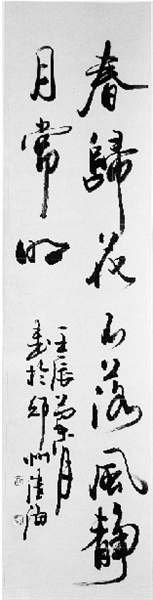 春歸花不落風靜
月常明
壬辰蘭月
書於鄭州清海